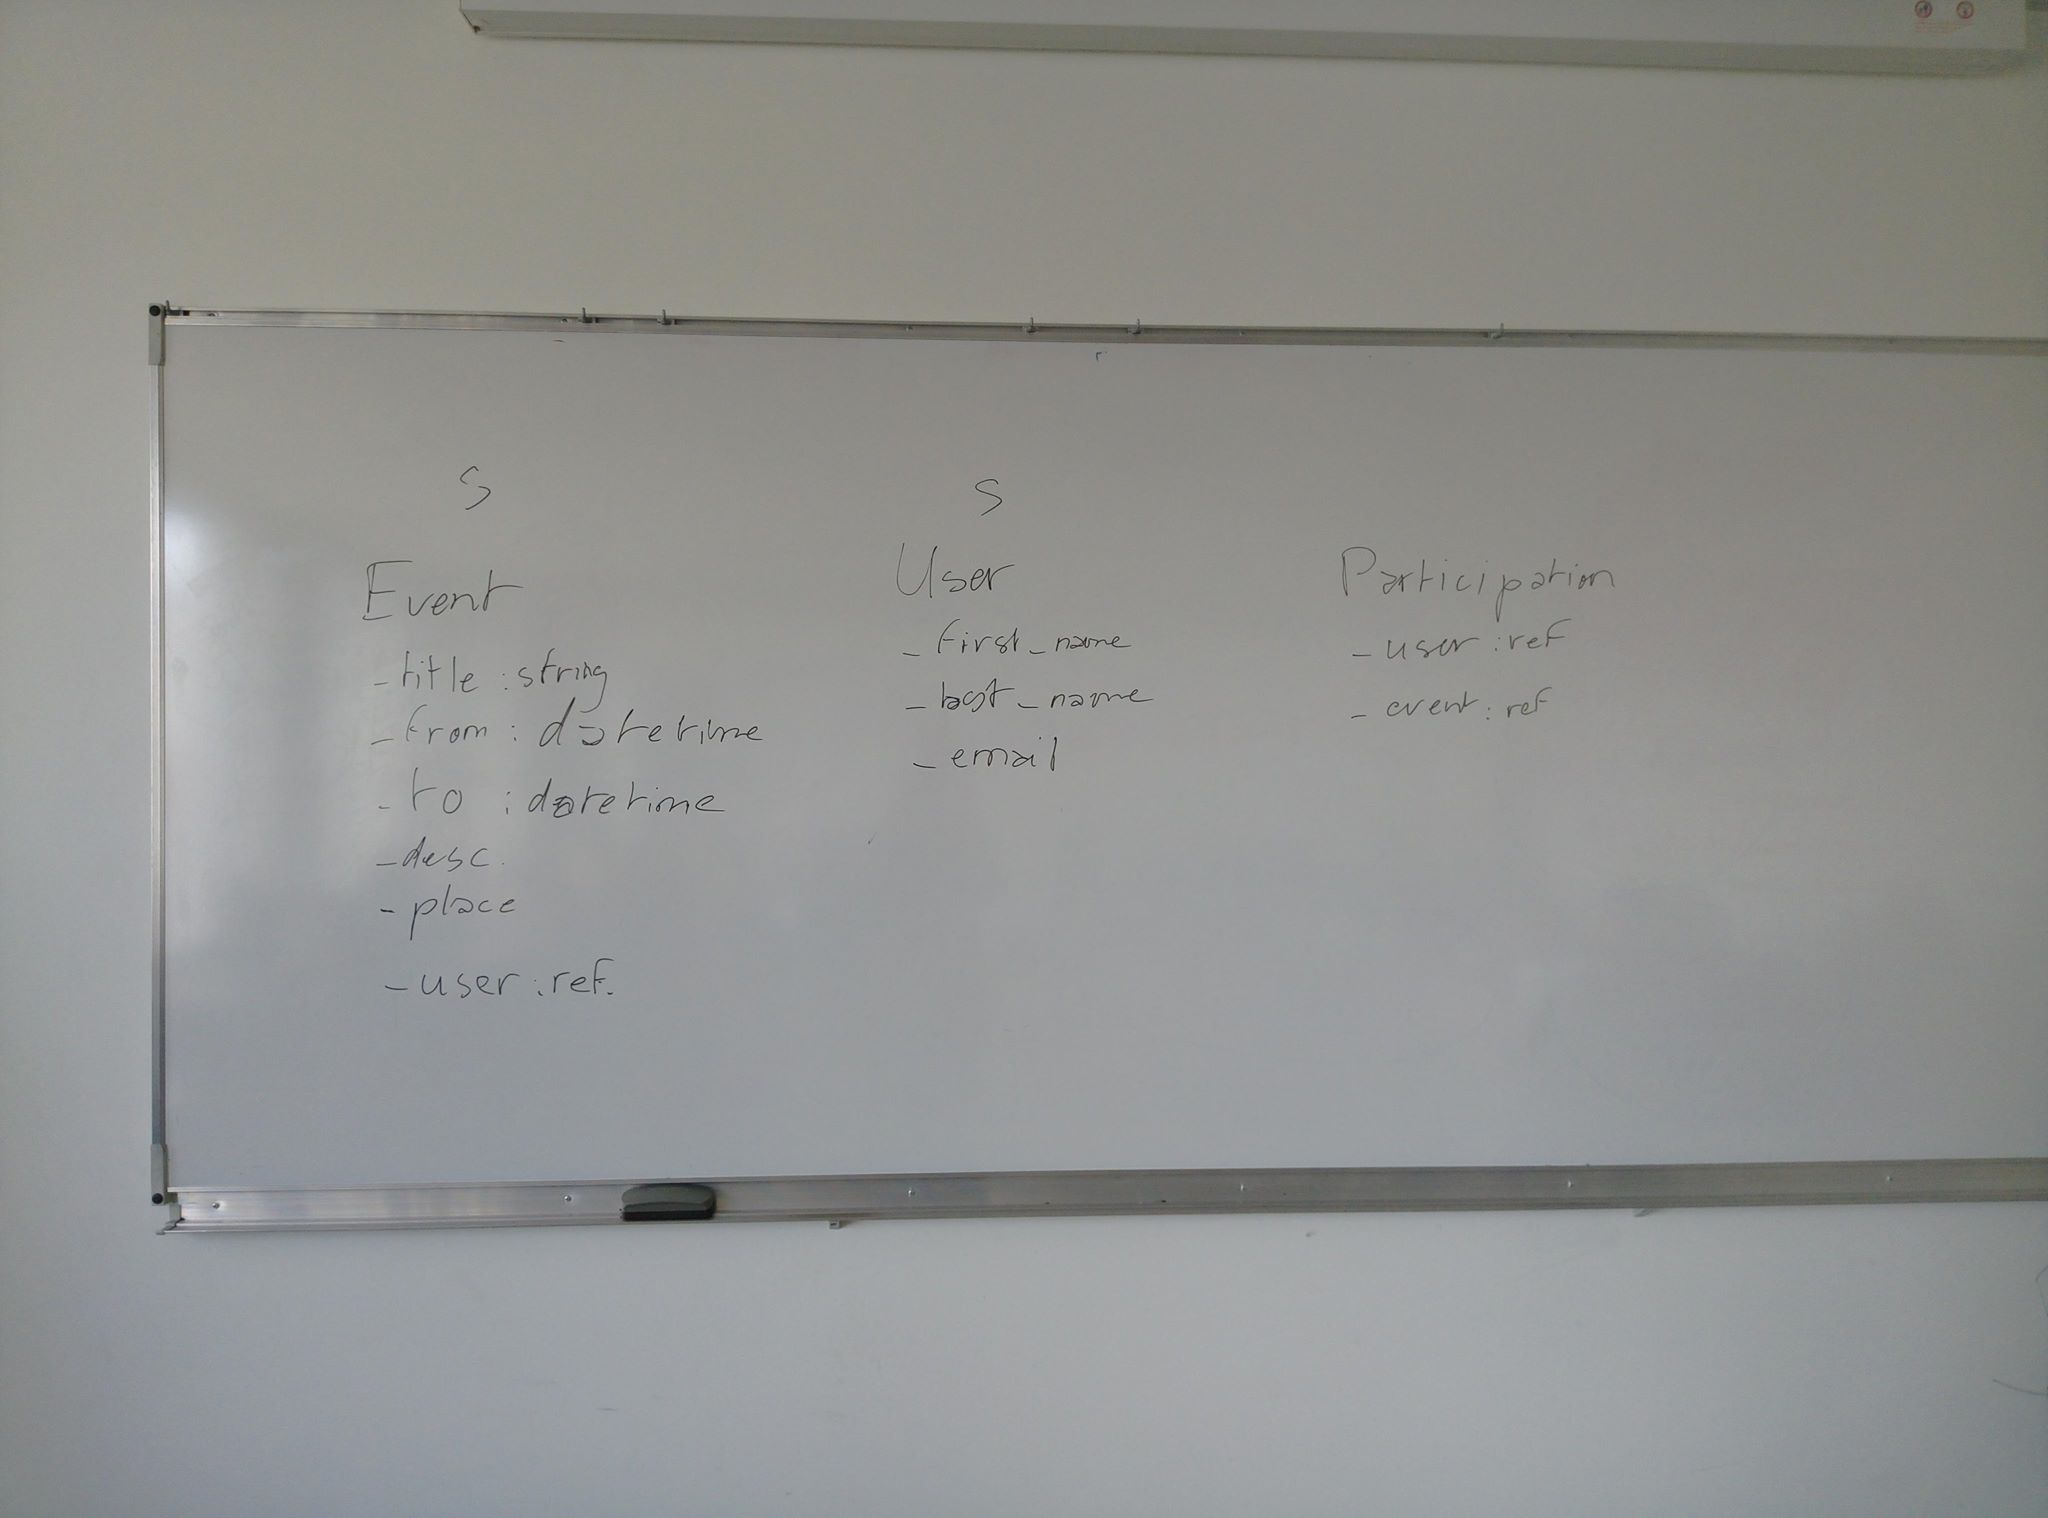 S
Event
- title : string
- from : datetime
- to : datetime
- desc.
- place
- user : ref.
S
User
- first_name
- last_name
- email
Participation
- user : ref
- event : ref